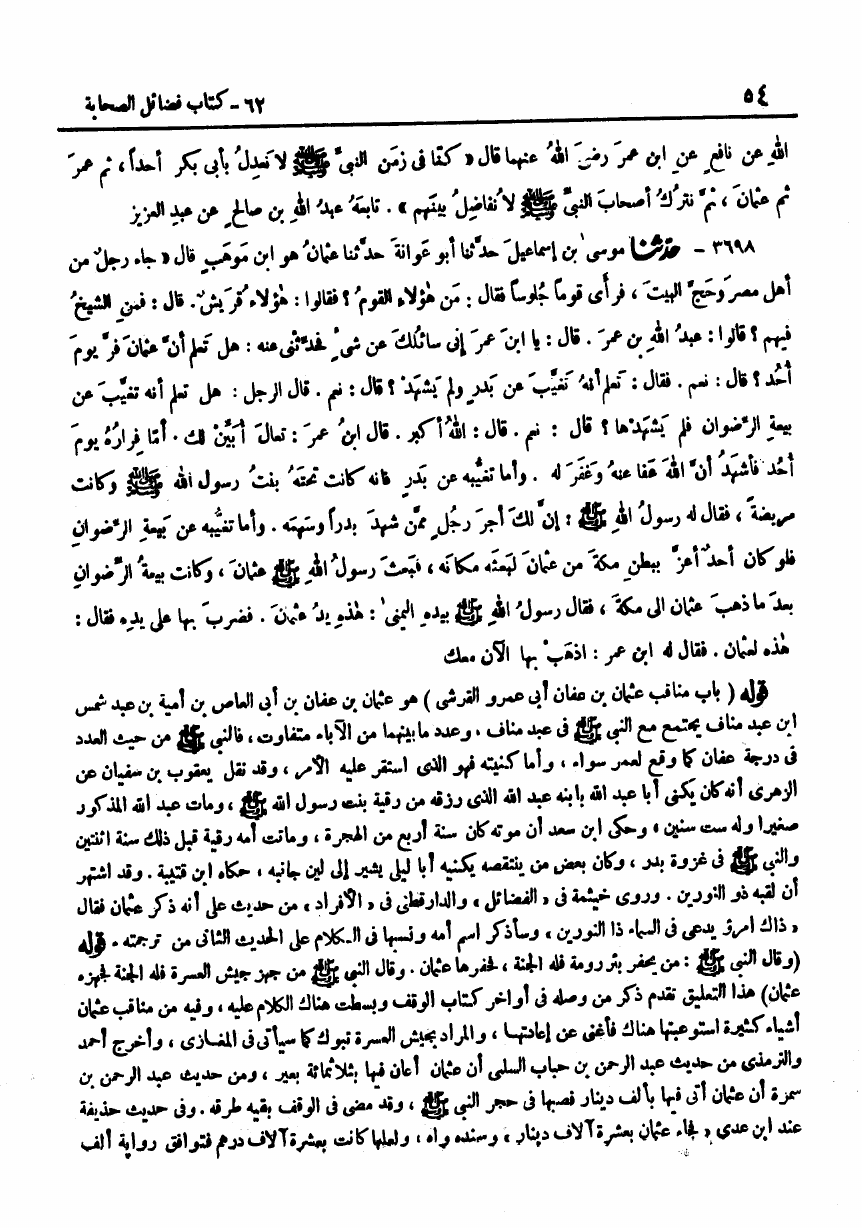 ٥٤
٦٢ - كتاب فضائل الصحابة
اللهِ عن نافعٍ عنِ ابن عمرَ رضىَ اللهُ عنهما قال « كنّا فى زمَن النبىِّ ﷺ لا نَعدِلُ بأبى بكر أحداً ، ثم عمرَ
ثم عثمانَ ، ثمَّ نتركُ أصحابَ النبىِّ ﷺ لا نُفاضِلُ بينَهم » . تابعَهُ عبدُ اللهِ بن صالحٍ عن عبدِ العزيز
٣٦٩٨ - حدثنا موسىٰ بن إسماعيلَ حدَّثنا أبو عَوانةَ حدَّثنا عثمانُ هو ابن مَوهَبٍ قال « جاء رجلٌ من
أهل مصرَ وحَجَّ البيتَ ، فرأى قوماً جُلوساً فقال : مَن هٰؤلاءِ القومُ ؟ فقالوا : هٰؤلاءِ قُرَيشٌ . قال : فمنِ الشيخُ
فيهم ؟ قالوا : عبدُ اللهِ بن عمرَ . قال : يا ابنَ عمرَ إنى سائلُكَ عن شىءٍ فحدِّثنى عنه : هل تَعلم أنَّ عثمانَ فرَّ يومَ
أُحُد ؟ قال : نعم . فقال : تَعلم أنهُ تَغيَّبَ عن بَدرٍ ولم يَشهَدْ ؟ قال : نعم . قال الرجل : هل تعلم أنه تغيَّبَ عن
بيعةِ الرِّضوان فلم يَشهَدْها ؟ قال : نعم . قال : اللهُ أكبر . قال ابنُ عمرَ : تعالَ أُبَيِّنْ لك . أمّا فِرارُهُ يومَ
أُحُد فأشهَدُ أنَّ اللهَ عَفا عنهُ وغَفرَ له . وأما تغيُّبه عن بَدرٍ فانه كانت تحتَهُ بنتُ رسول الله ﷺ وكانت
مريضةً ، فقال له رسولُ اللهِ ﷺ : إنَّ لكَ أجرَ رجُلٍ ممَّن شهدَ بدراً وسَهمَه . وأما تغيُّبه عن بَيعةِ الرِّضوانِ
فلو كان أحدٌ أعزَّ ببطنِ مكةَ من عثمانَ لبَعثَه مكانَه ، فبَعثَ رسولُ اللهِ ﷺ عثمانَ ، وكانت بيعةُ الرِّضوانِ
بعدَ ما ذهبَ عثمان الى مكةَ ، فقال رسولُ اللهِ ﷺ بيدهِ اليمنىٰ : هٰذهِ يدُ عثمنَ . فضربَ بها على يدِه فقال :
هٰذه لعثمان . فقال له ابن عمر : اذهَبْ بها الآن معك
قوله ( باب مناقب عثمان بن عفان أبى عمرو القرشى ) هو عثمان بن عفان بن أبى العاص بن أمية بن عبد شمس
ابن عبد مناف يجتمع مع النبى ﷺ فى عبد مناف ، وعدد ما بينهما من الآباء متفاوت ، فالنبى ﷺ من حيث العدد
فى درجة عفان كما وقع لعمر سواء ، وأما كنيته فهو الذى استقر عليه الأمر ، وقد نقل يعقوب بن سفيان عن
الزهرى أنه كان يكنى أبا عبد الله بابنه عبد الله الذى رزقه من رقية بنت رسول الله ﷺ ، ومات عبد الله المذكور
صغيرا وله ست سنين ، وحكى ابن سعد أن موته كان سنة أربع من الهجرة ، وماتت أمه رقية قبل ذلك سنة اثنتين
والنبى ﷺ فى غزوة بدر ، وكان بعض من ينتقصه يكنيه أبا ليلى يشير إلى لين جانبه ، حكاه ابن قتيبة . وقد اشتهر
أن لقبه ذو النورين . وروى خيثمة فى « الفضائل » والدارقطنى فى « الأفراد » من حديث على أنه ذكر عثمان فقال
« ذاك امرؤ يدعى فى السماء ذا النورين » وسأذكر اسم أمه ونسبها فى الكلام على الحديث الثانى من ترجمته . قوله
(وقال النبى ﷺ : من يحفر بئر رومة فله الجنة ، فحفرها عثمان . وقال النبى ﷺ من جهز جيش العسرة فله الجنة فجهزه
عثمان) هذا التعليق تقدم ذكر من وصله فى أواخر كتاب الوقف وبسطت هناك الكلام عليه ، وفيه من مناقب عثمان
أشياء كثيرة استوعبتها هناك فأغنى عن إعادتها ، والمراد بجيش العسرة تبوك كما سيأتى فى المغازى ، وأخرج أحمد
والترمذى من حديث عبد الرحمن بن حباب السلمى أن عثمان أعان فيها بثلاثمائة بعير ، ومن حديث عبد الرحمن بن
سمرة أن عثمان أتى فيها بألف دينار فصبها فى حجر النبى ﷺ ، وقد مضى فى الوقف بقية طرقه . وفى حديث حذيفة
عند ابن عدى « فجاء عثمان بعشرة آلاف دينار » وسنده واه ، ولعلها كانت بعشرة آلاف درهم فتوافق رواية ألف